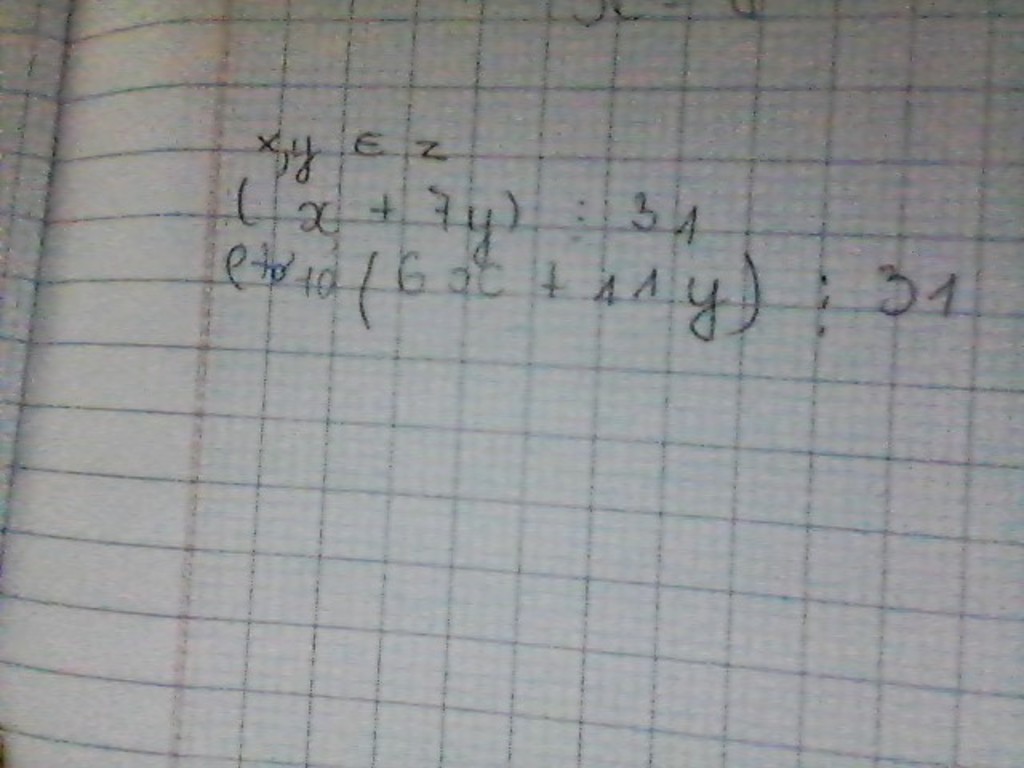 x,y ∈ z
( x + 7y) : 31
(6x + 11y) : 31